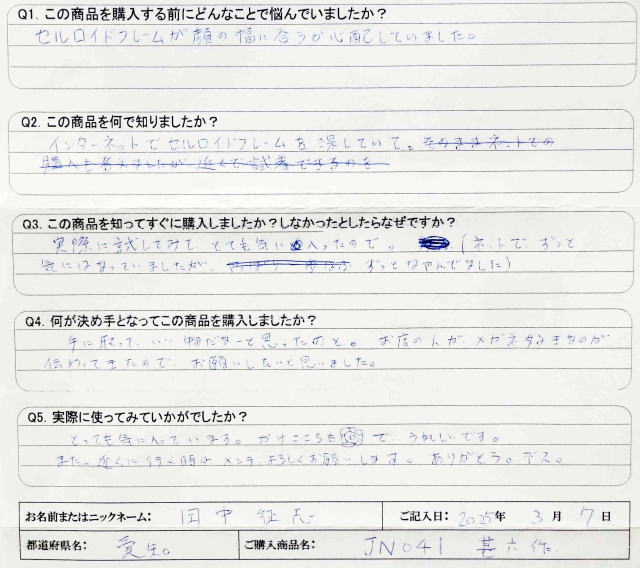 Q1. この商品を購入する前にどんなことで悩んでいましたか？
セルロイドフレームが顔の幅に合うか心配していました。
Q2. この商品を何で知りましたか？
インターネットでセルロイドフレームを探していて。そのままネットでの
購入も考えましたが近くで試着できるのを
Q3. この商品を知ってすぐに購入しましたか？しなかったとしたらなぜですか？
実際に試してみて、とても気に入ったので。(ネットで、ずっと
気にはなっていましたが、ずっとなやんでました)
Q4. 何が決め手となってこの商品を購入しましたか？
手に取って、いい物だなーと思ったのと。お店の人が、メガネ好きなのが
伝わってきたので、お願いしたいと思いました。
Q5. 実際に使ってみていかがでしたか？
とっても気に入っています。かけごこちも で、うれしいです。
また、近くに行く時は メンテ、よろしくお願いします。ありがとう。デス。
お名前またはニックネーム： 田中 征志
ご記入日： 2025年 3月 7日
都道府県名： 愛知。
ご購入商品名： JN041 甚六作.